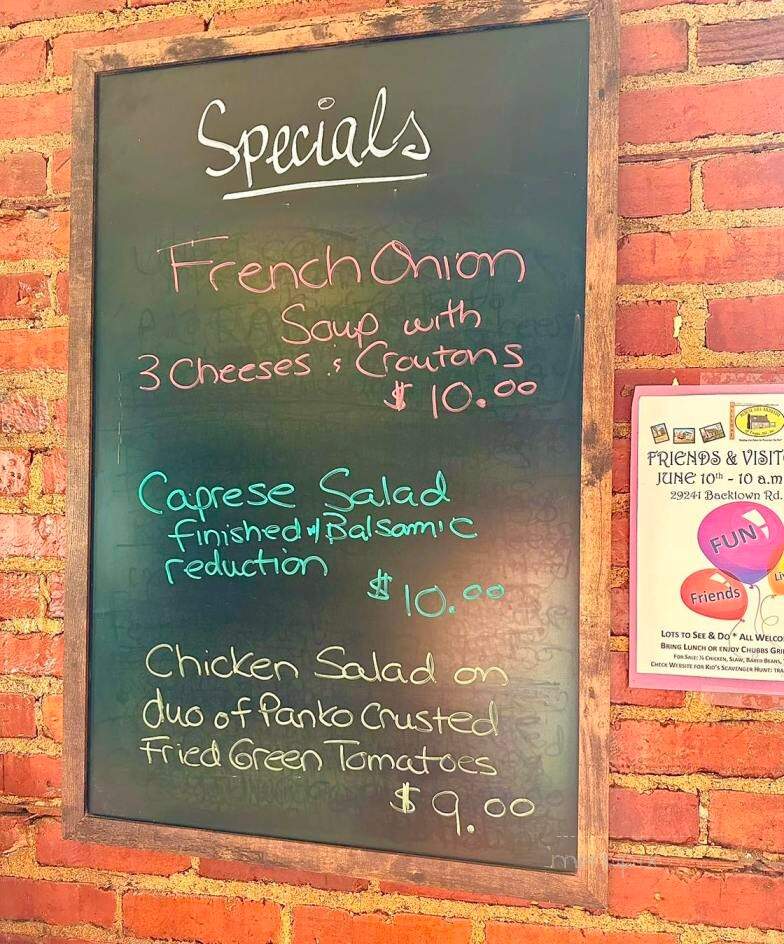 Specials
French Onion
Soup with
3 Cheeses & Croutons
$ 10.00
Caprese Salad
finished w/ Balsamic
reduction
$ 10.00
Chicken Salad on
duo of Panko Crusted
Fried Green Tomatoes
$ 9.00
FRIENDS & VISIT
JUNE 10th - 10 a.m
29241 Backtown Rd.
FUN
Friends
LOTS TO SEE & DO * ALL WELCO
BRING LUNCH OR ENJOY CHUBBS GRI
FOR SALE: ½ CHICKEN, SLAW, BAKED BEANS,
CHECK WEBSITE FOR KID'S SCAVENGER HUNT: TRA